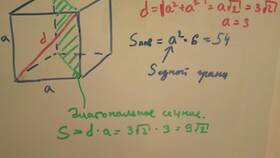 d = √a² + a² = a√2 = 3√2
a = 3
a
d
a
Sпов = a² · 6 = 54
Sодной грани
Диагональное сечение.
S = d · a = 3√2 · 3 = 9√2